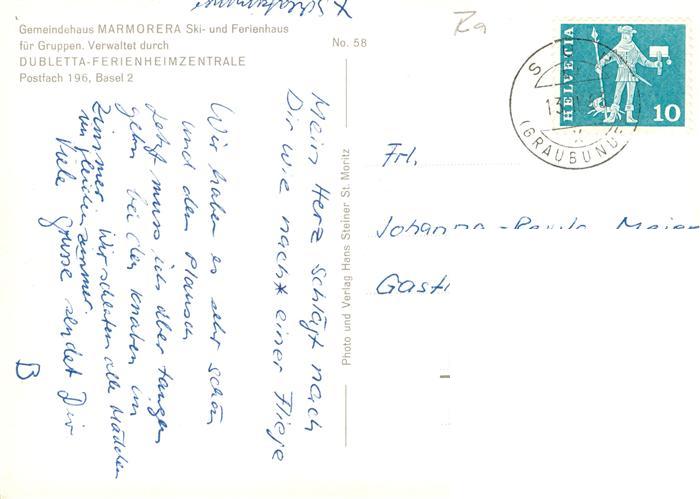 x Schlafzimmer
Ra
Gemeindehaus MARMORERA Ski- und Ferienhaus
für Gruppen. Verwaltet durch
DUBLETTA-FERIENHEIMZENTRALE
Postfach 196, Basel 2
No. 58
HELVETIA
10
S
13
(GRAUBÜND
Photo und Verlag Hans Steiner St. Moritz
Frl.
Johanna
Gast
Mein Herz schlägt nach
Dir wie nach* einer Fliege
Wir haben es sehr schön
und den Plausch
Jetzt muss ich aber
gehn bei den Knaben im
Zimmer. Wir schlafen alle Mädchen
im gleichen zimmer
Viele Grüsse sendet Dir
B